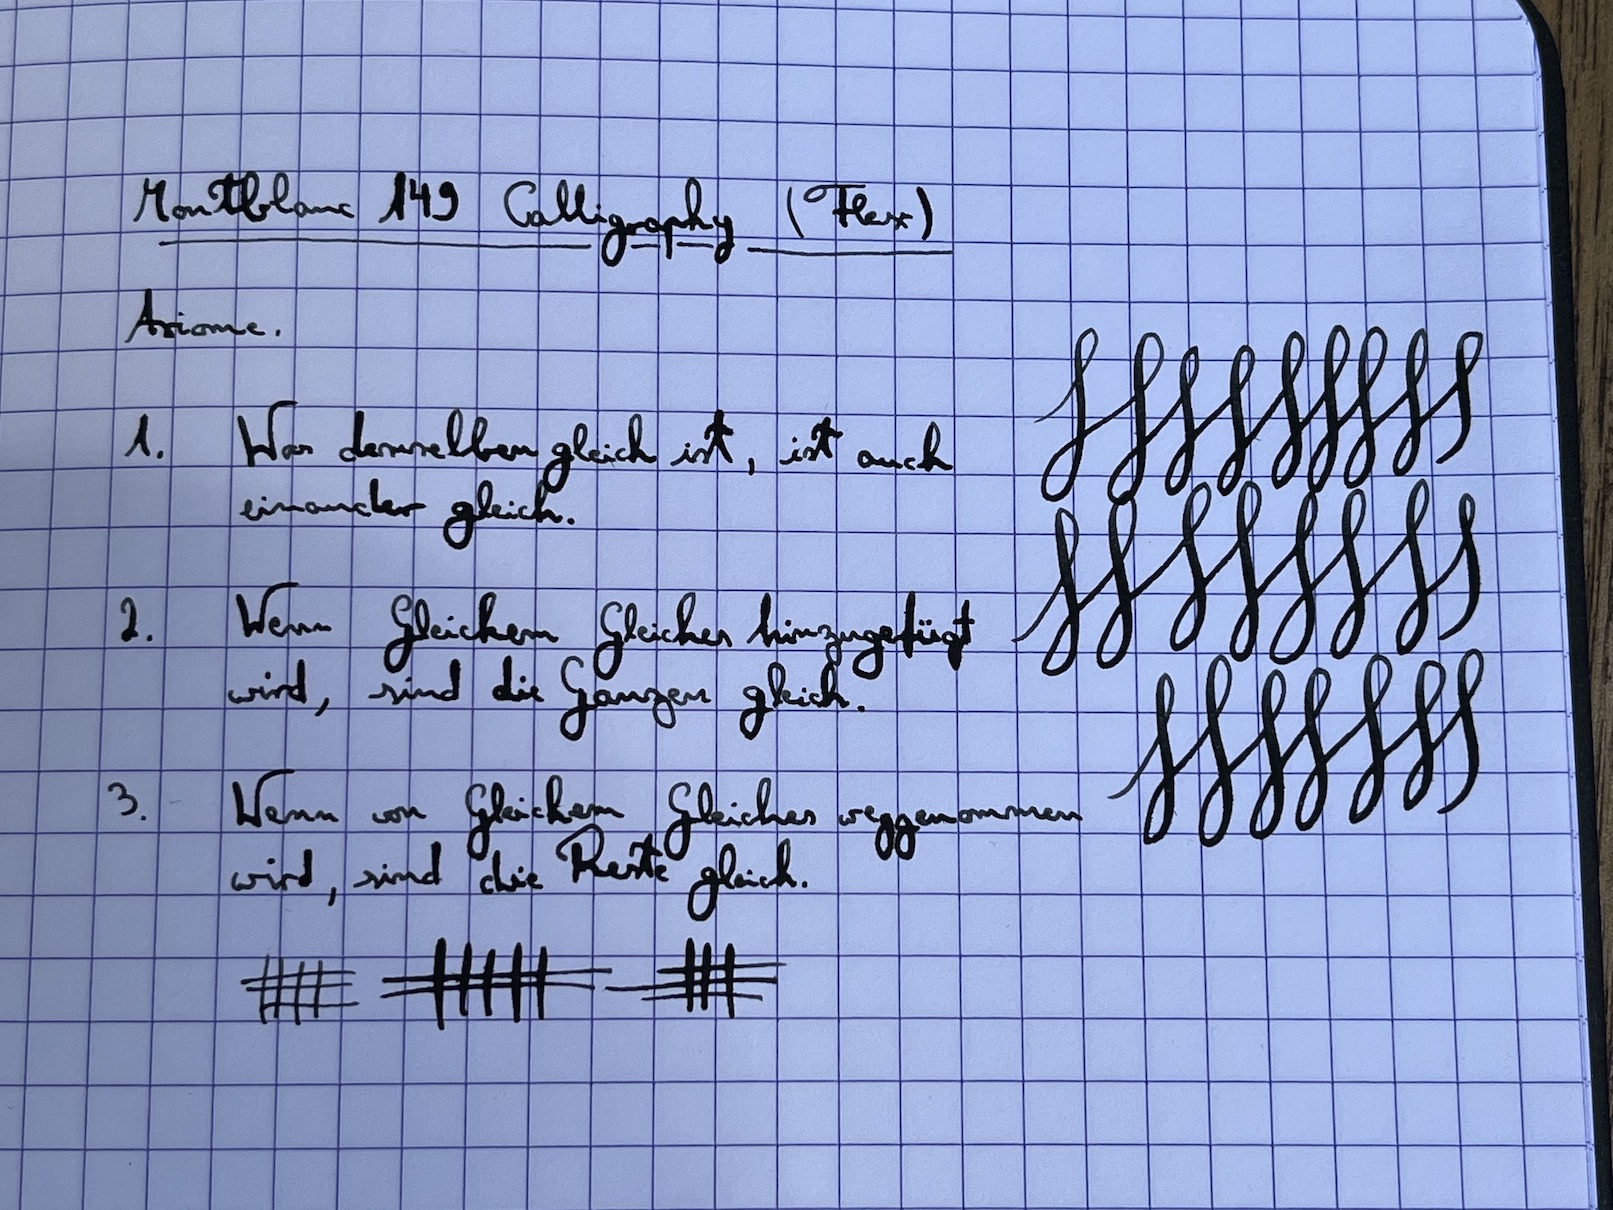 Montblanc 149 Calligraphy (Flex)
Axiome.
1. Was demselben gleich ist, ist auch
einander gleich.
2. Wenn Gleichem Gleiches hinzugefügt
wird, sind die Ganzen gleich.
3. Wenn von Gleichem Gleiches weggenommen
wird, sind die Reste gleich.